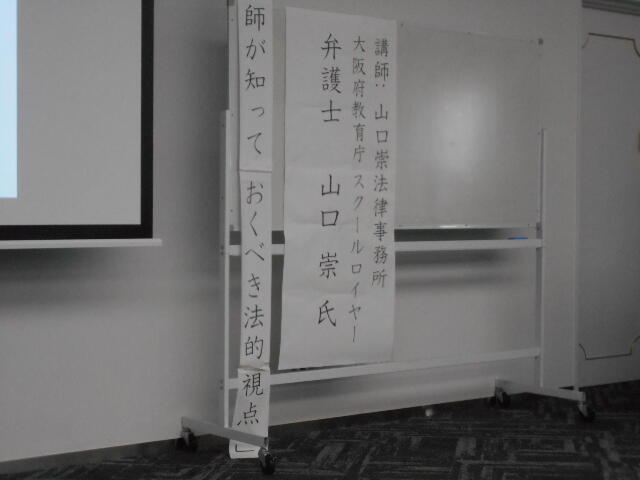 講師：山口崇法律事務所
大阪府教育庁スクールロイヤー
弁護士　山口　崇　氏
師が知っておくべき法的視点」